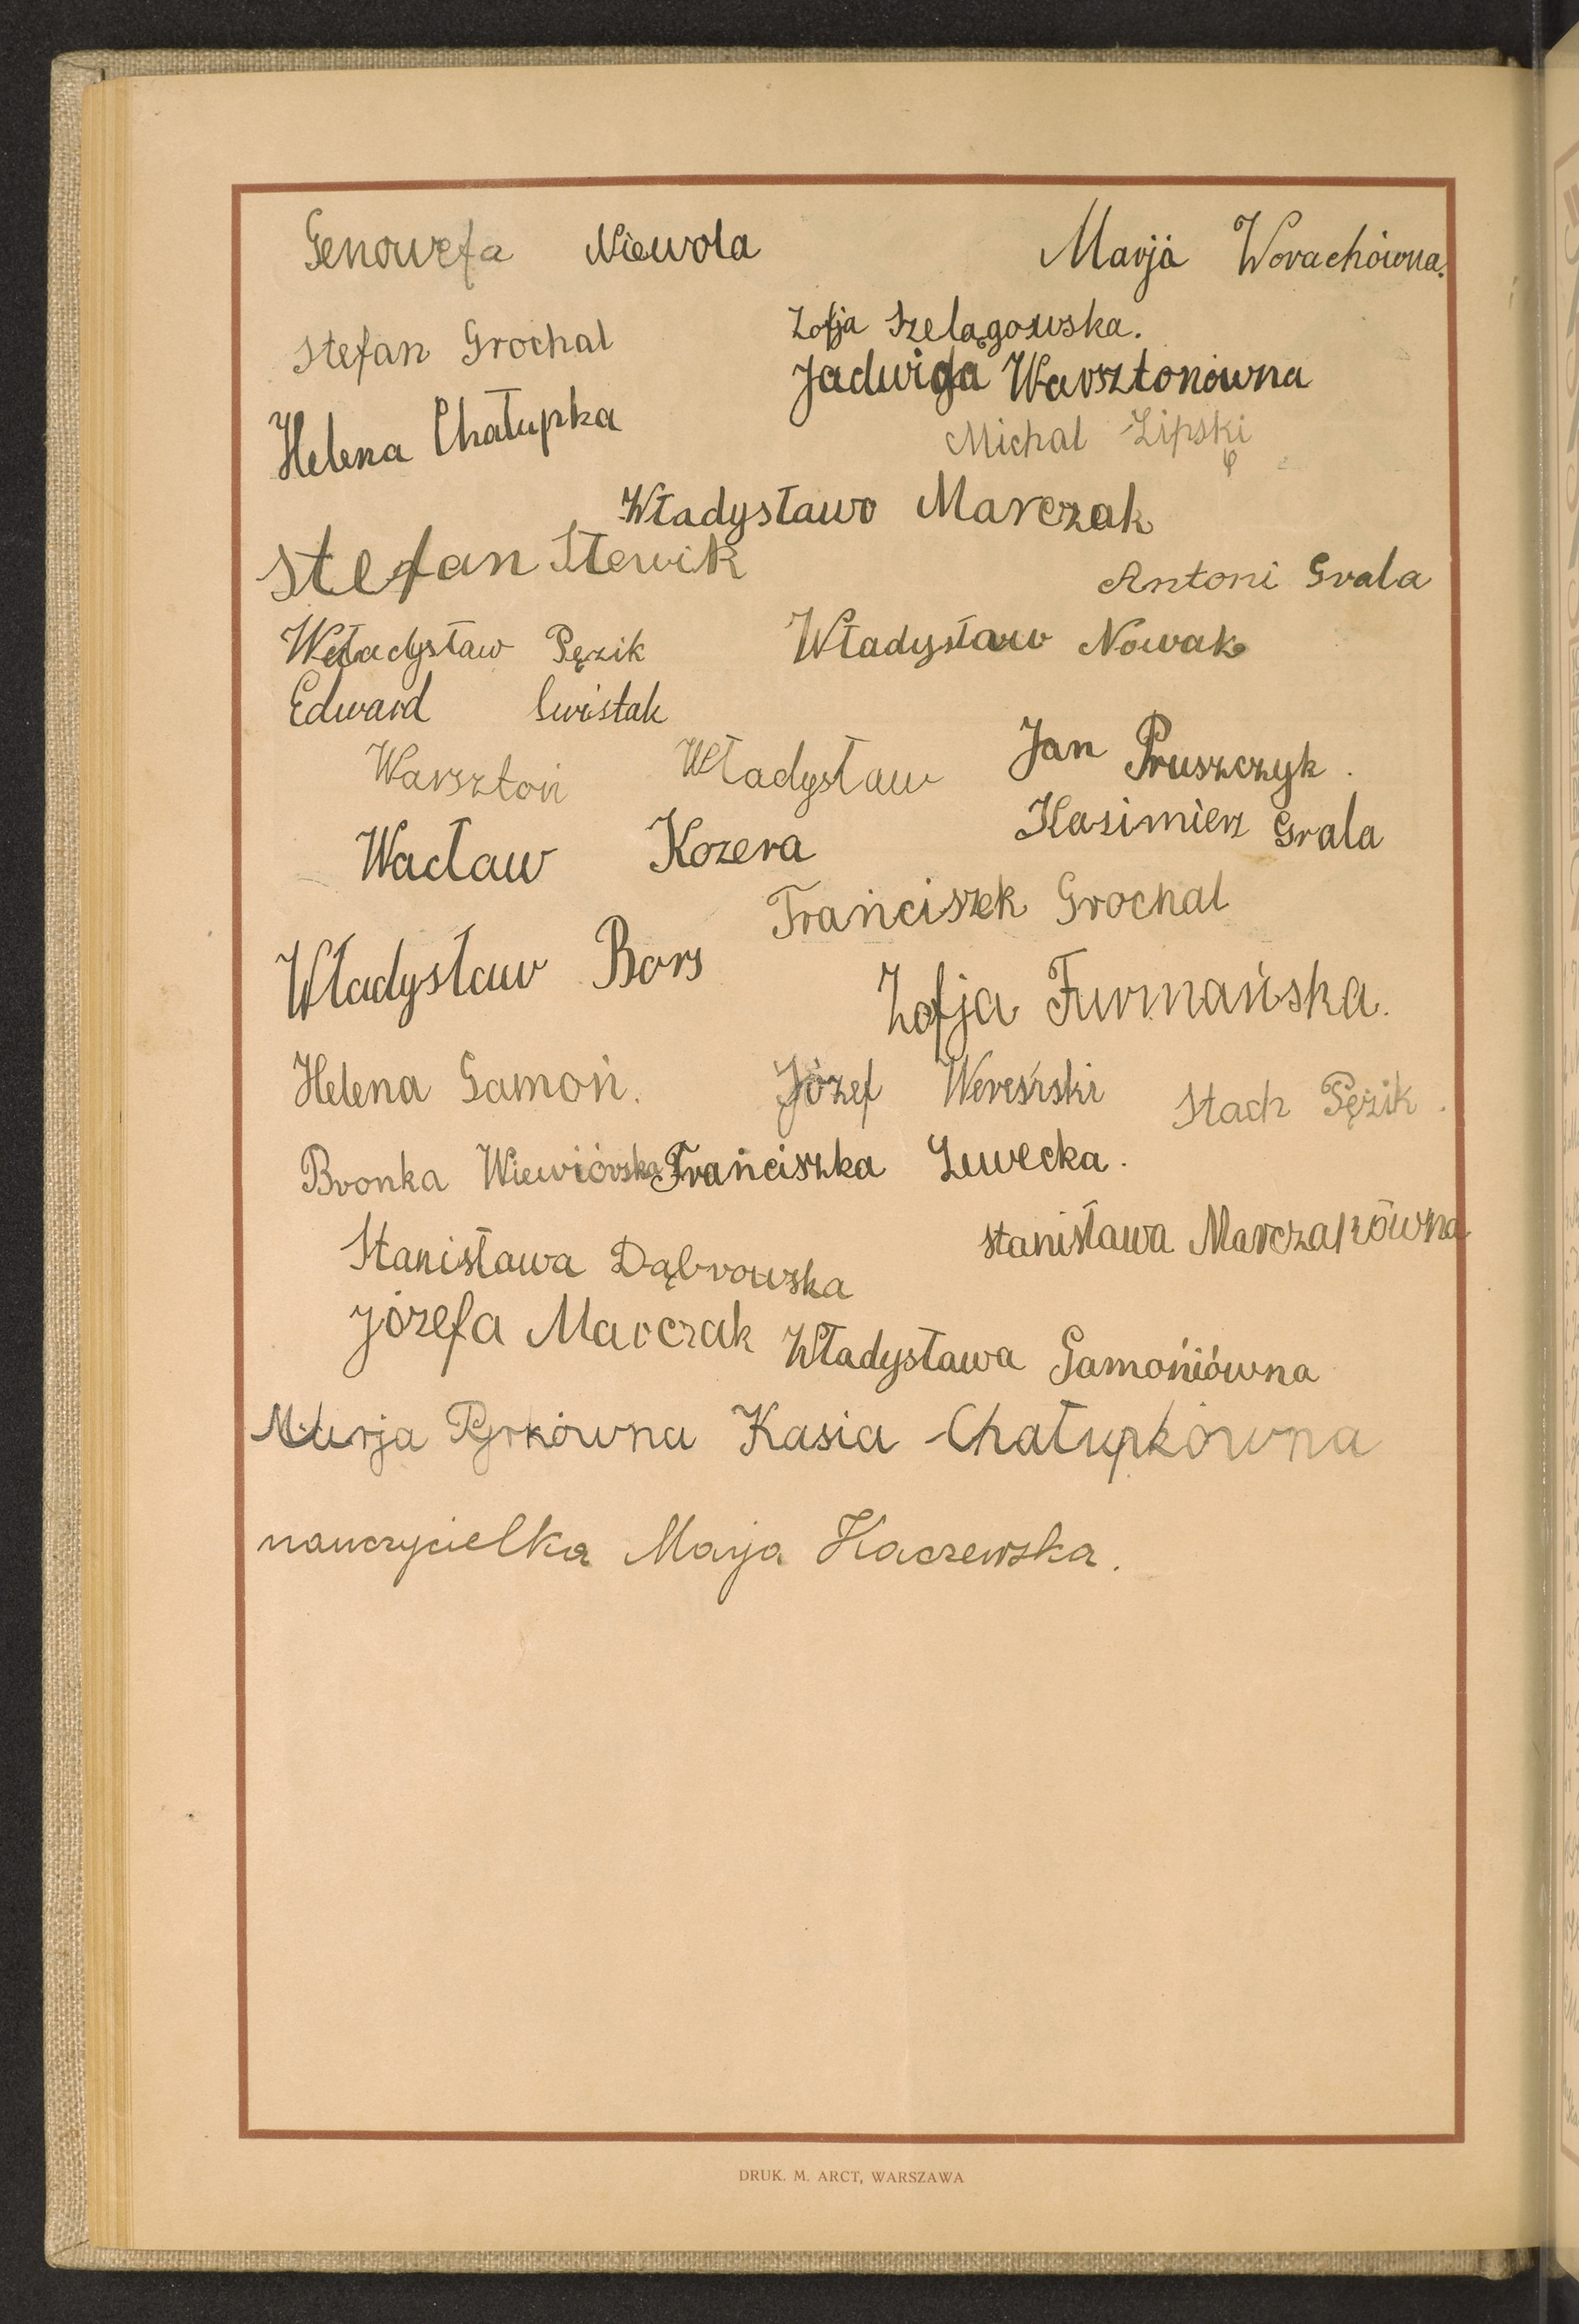 Genowefa Niewola Marja Worachówna.
Stefan Grochal Zofja Szelągowska.
Jadwiga Warsztonówna
Helena Chałupka Michal Lipski
Władysławo Marczak
Stefan Stewik Antoni Grala
Władysław Pęzik Władysław Nowak
Edward Swistak
Warsztoń Władysław Jan Pruszczyk.
Wacław Kozera Kazimierz Grala
Franciszek Grochal
Władysław Bors Zofja Furmańska.
Helena Gamoń. Józef Stach Pęzik.
Bronka Wiewiórska Franciszka Lewecka.
Stanisława Dąbrowska Stanisława Marczakówna
Józefa Marczak Władysława Gamońiówna
Marja Pyrkówna Kasia Chałupkówna
nauczycielka Marja Kaczewska.
DRUK. M. ARCT, WARSZAWA